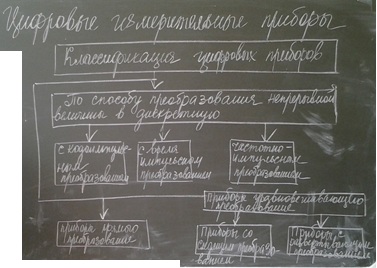 Цифровые измерительные приборы
Классификация цифровых приборов
По способу преобразования непрерывной
величины в дискретную
с кодоимпульс-
ным
преобразованием
с время
импульсным
преобразованием
частотно-
импульсным
преобразованием
Приборы уравновешивающего
преобразования
приборы прямого
преобразования
Приборы со
следящим преобразо-
ванием
Приборы с
развертывающим
преобразованием